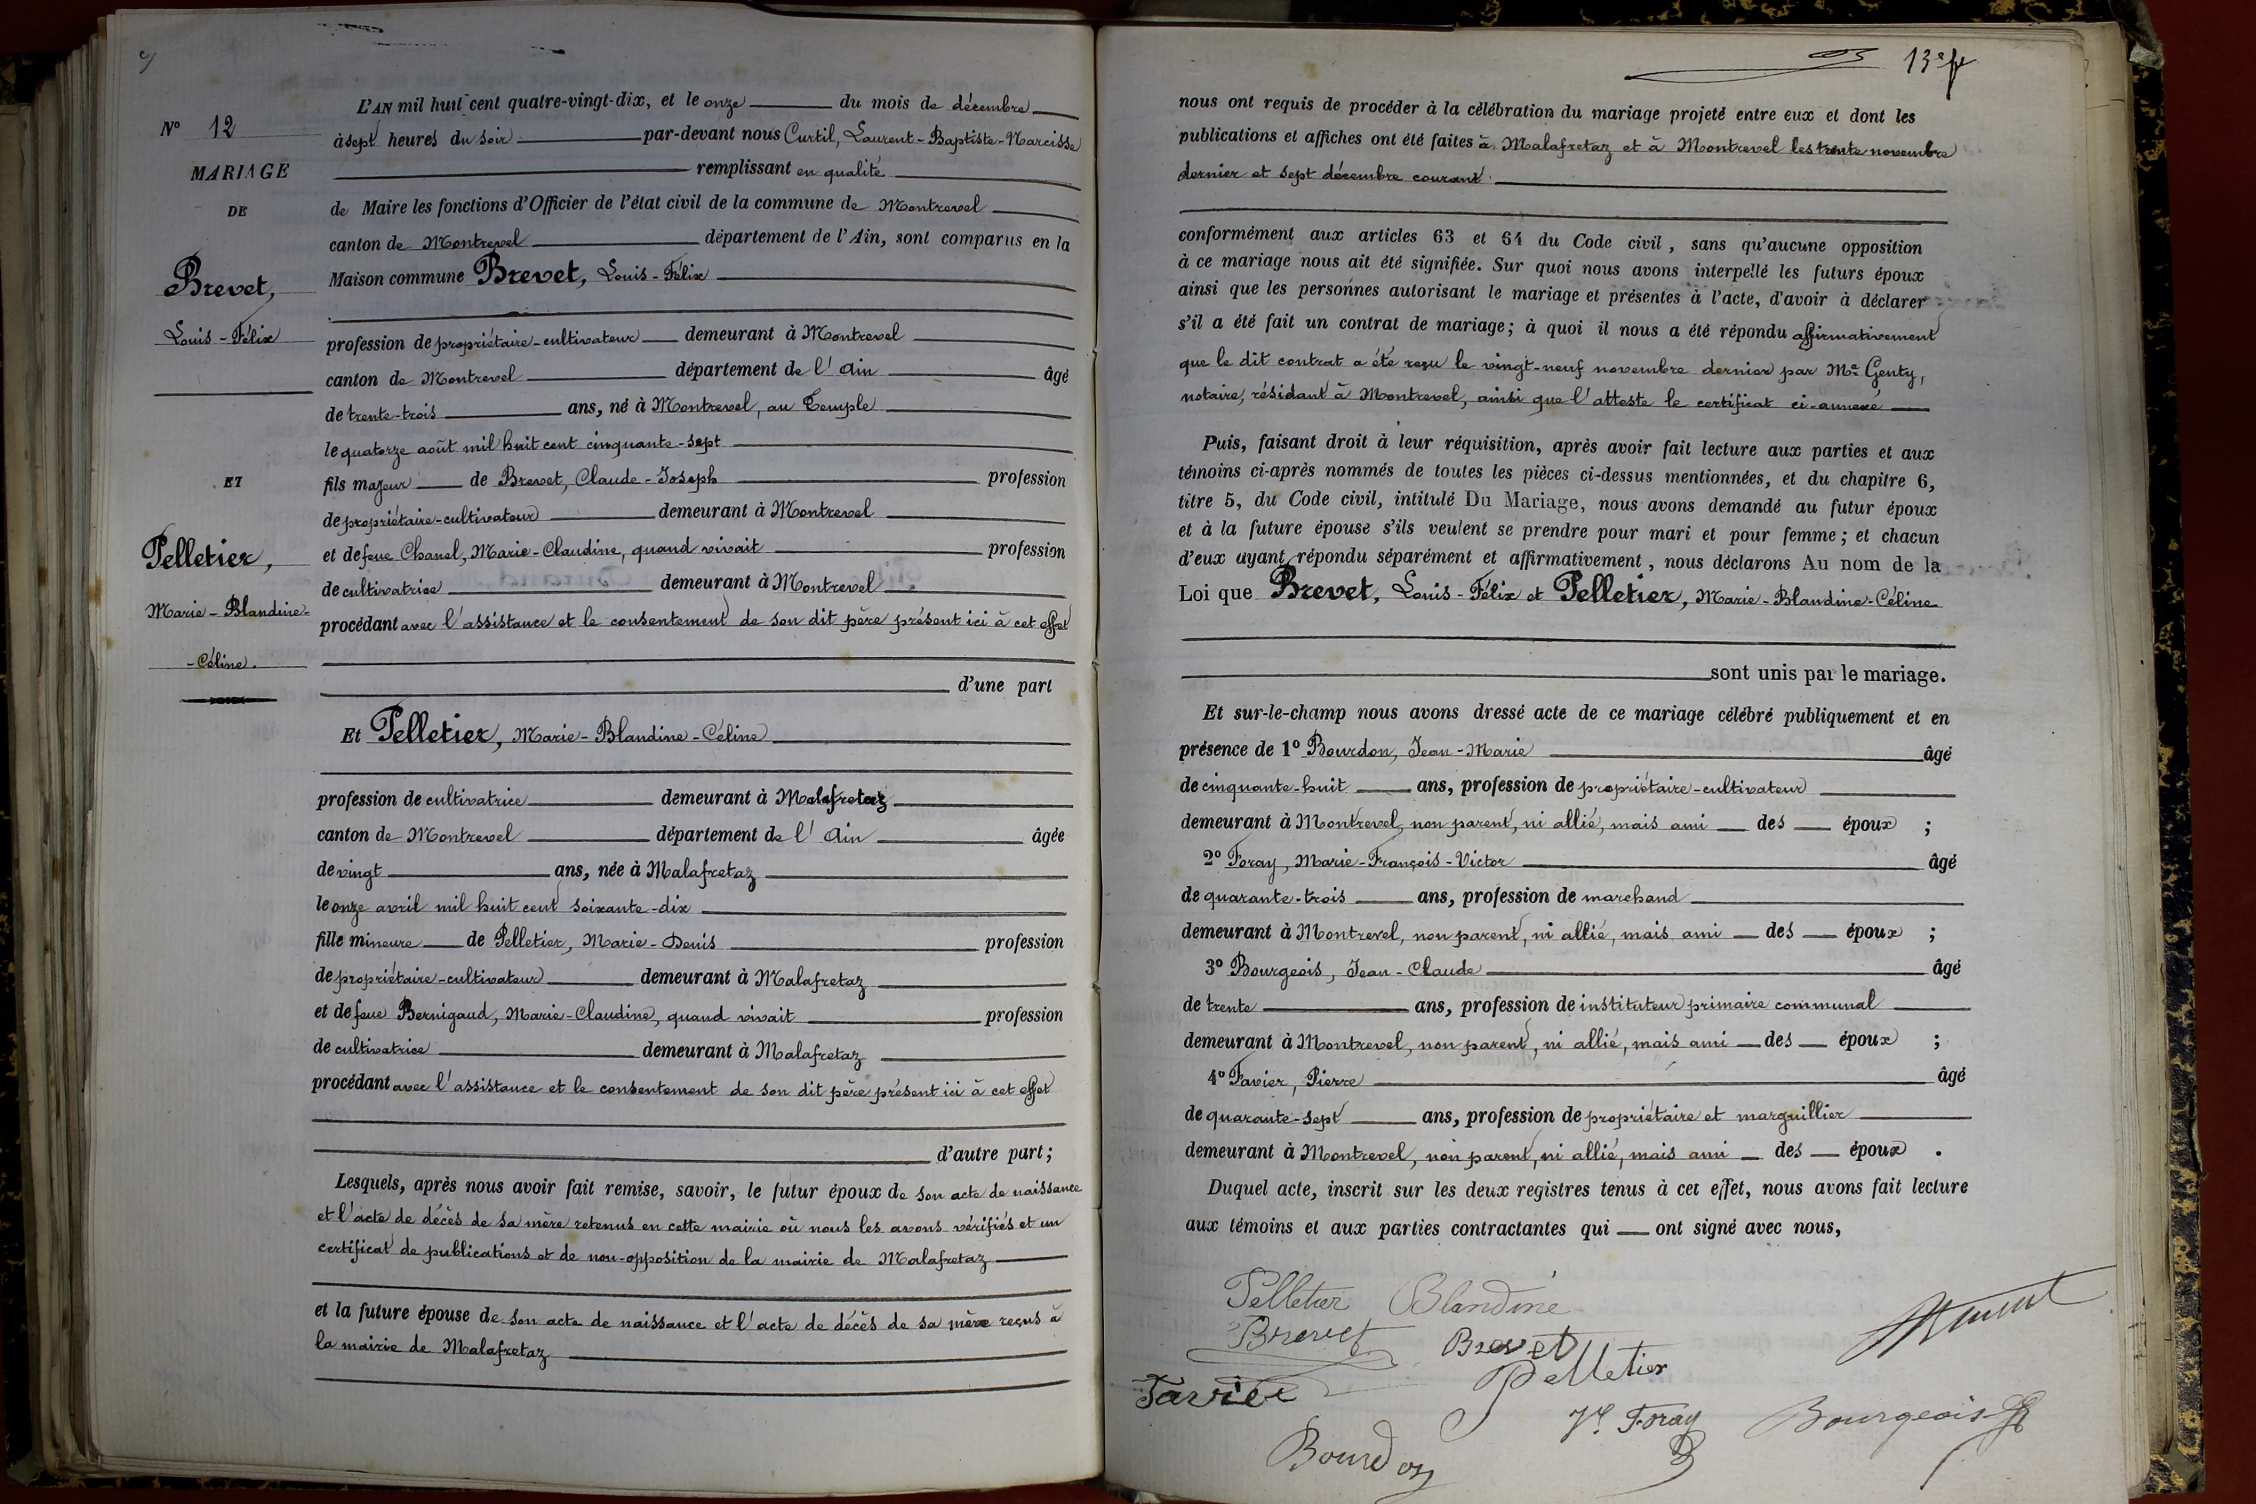 N° 12
MARIAGE
DE
Brevet,
Louis-Félix
ET
Pelletier,
Marie-Blandine-
-Céline.
L'AN mil huit cent quatre-vingt-dix, et le onze du mois de décembre
à sept heures du soir par-devant nous Curtil, Laurent-Baptiste-Narcisse
remplissant en qualité
de Maire les fonctions d'Officier de l'état civil de la commune de Montrevel
canton de Montrevel département de l'Ain, sont comparus en la
Maison commune Brevet, Louis-Félix
profession de propriétaire-cultivateur demeurant à Montrevel
canton de Montrevel département de l'Ain âgé
de trente-trois ans, né à Montrevel, au Temple
le quatorze août mil huit cent cinquante-sept
fils majeur de Brevet, Claude-Joseph profession
de propriétaire-cultivateur demeurant à Montrevel
et de feue Chanel, Marie-Claudine, quand vivait profession
de cultivatrice demeurant à Montrevel
procédant avec l'assistance et le consentement de son dit père présent ici à cet effet
d'une part
Et Pelletier, Marie-Blandine-Céline
profession de cultivatrice demeurant à Malafretaz
canton de Montrevel département de l'Ain âgée
de vingt ans, née à Malafretaz
le onze avril mil huit cent soixante-dix
fille mineure de Pelletier, Marie-Denis profession
de propriétaire-cultivateur demeurant à Malafretaz
et de feue Bernigaud, Marie-Claudine, quand vivait profession
de cultivatrice demeurant à Malafretaz
procédant avec l'assistance et le consentement de son dit père présent ici à cet effet
d'autre part;
Lesquels, après nous avoir fait remise, savoir, le futur époux de son acte de naissance
et l'acte de décès de sa mère retenus en cette mairie où nous les avons vérifiés et un
certificat de publications et de non-opposition de la mairie de Malafretaz
et la future épouse de son acte de naissance et l'acte de décès de sa mère reçus à
la mairie de Malafretaz
13e
nous ont requis de procéder à la célébration du mariage projeté entre eux et dont les
publications et affiches ont été faites à Malafretaz et à Montrevel les trente novembre
dernier et sept décembre courant
conformément aux articles 63 et 64 du Code civil, sans qu'aucune opposition
à ce mariage nous ait été signifiée. Sur quoi nous avons interpellé les futurs époux
ainsi que les personnes autorisant le mariage et présentes à l'acte, d'avoir à déclarer
s'il a été fait un contrat de mariage; à quoi il nous a été répondu affirmativement
que le dit contrat a été reçu le vingt-neuf novembre dernier par Me Genty,
notaire, résidant à Montrevel, ainsi que l'atteste le certificat ci-annexé
Puis, faisant droit à leur réquisition, après avoir fait lecture aux parties et aux
témoins ci-après nommés de toutes les pièces ci-dessus mentionnées, et du chapitre 6,
titre 5, du Code civil, intitulé Du Mariage, nous avons demandé au futur époux
et à la future épouse s'ils veulent se prendre pour mari et pour femme; et chacun
d'eux ayant répondu séparément et affirmativement, nous déclarons Au nom de la
Loi que Brevet, Louis-Félix et Pelletier, Marie-Blandine-Céline
sont unis par le mariage.
Et sur-le-champ nous avons dressé acte de ce mariage célébré publiquement et en
présence de 1° Bourdon, Jean-Marie âgé
de cinquante-huit ans, profession de propriétaire-cultivateur
demeurant à Montrevel, non parent, ni allié, mais ami des époux ;
2° Foray, Marie-François-Victor âgé
de quarante-trois ans, profession de marchand
demeurant à Montrevel, non parent, ni allié, mais ami des époux ;
3° Bourgeois, Jean-Claude âgé
de trente ans, profession de instituteur primaire communal
demeurant à Montrevel, non parent, ni allié, mais ami des époux ;
4° Favier, Pierre âgé
de quarante-sept ans, profession de propriétaire et marguillier
demeurant à Montrevel, non parent, ni allié, mais ami des époux .
Duquel acte, inscrit sur les deux registres tenus à cet effet, nous avons fait lecture
aux témoins et aux parties contractantes qui ont signé avec nous,
Pelletier Blandine
Brevet Brevet
Favier Pelletier
Vr Foray Bourgeois
Bourdon